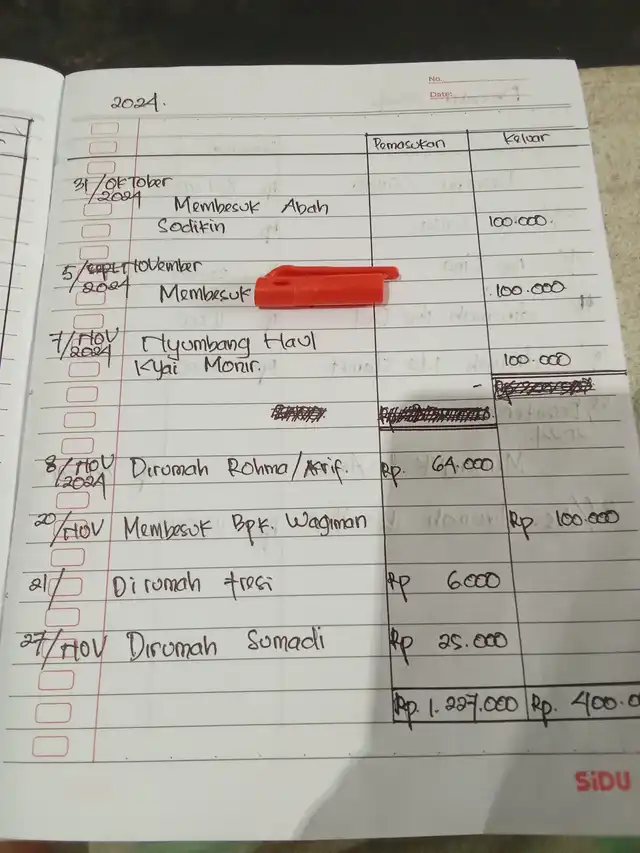 No.
Date:
2024.
Pemasukan Keluar
31/OKTober
2024
Membesuk Abah
Sodikin 100.000.
5/November
2024
Membesuk 100.000
7/NOV
2024
Nyumbang Haul
Kyai Monir. 100.000
-
8/NOV
2024
Dirumah Rohma/Arif. Rp. 64.000
20/NOV Membesuk Bpk. Wagiman Rp 100.000
21/ Dirumah tresi Rp 6000
27/NOV Dirumah Sumadi Rp 25.000
Rp. 1.227.000 Rp. 400.0
SiDU